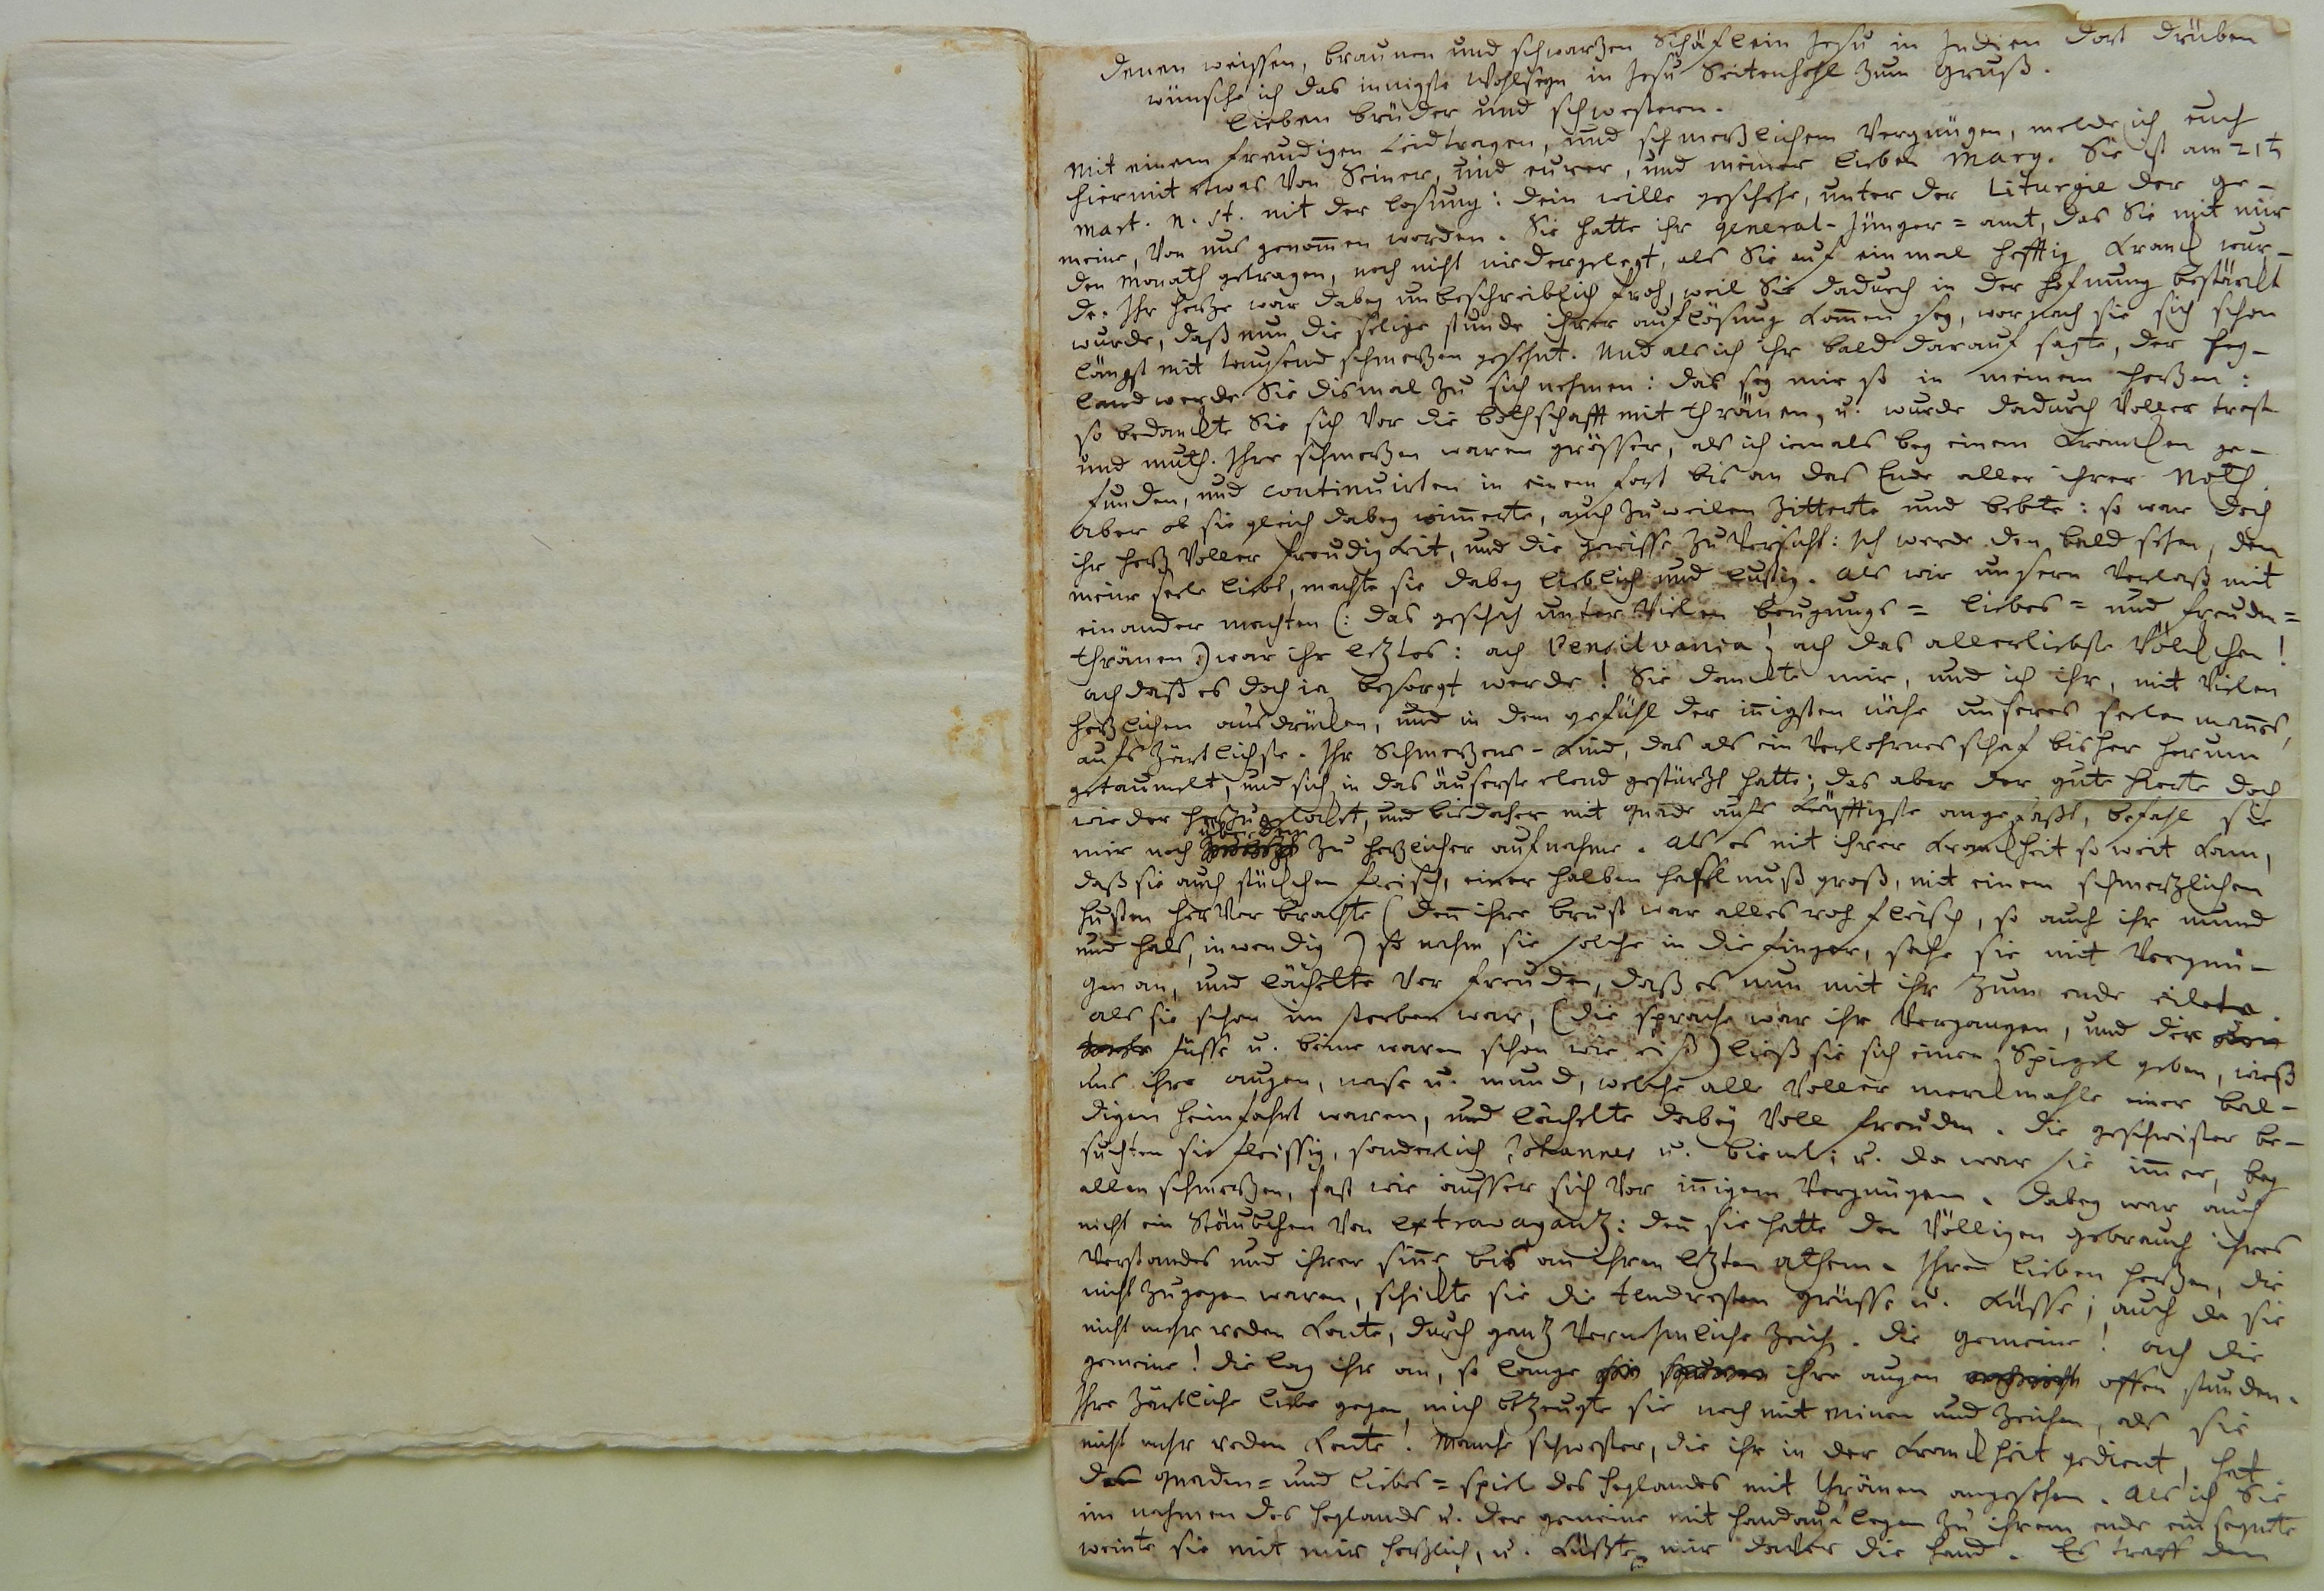 Denen weissen, braunen und schwarzen Schäflein Jesu in Indien dort drüben
wünsche ich das innigste Wohlseyn in Jesu Seitenhohl zum Gruß.
Lieben brüder und schwestern.
Mit einem freudigen Leidtragen, und schmerzlichem Vergnügen, melde ich euch
hiermit etwas von Seiner, und eurer, und meiner lieben Marg. Sie ist am 21t
Mart. n. st. mit der losung: dein wille geschehe, unter der Liturgie der ge-
meine, von uns genom̄en worden. Sie hatte ihr general-Jünger=amt, das Sie mit mir
den Monath getragen, noch nicht niedergelegt, als Sie auf einmal hefftig kranck wur-
de. Ihr herze war dabey unbeschreiblich froh, weil Sie dadurch in der hofnung bestärckt
wurde, daß nun die selige stunde ihrer auflösung kom̄en sey, wornach sie sich schon
längst mit tausend schmerzen gesehnt. Und als ich ihr bald darauf sagte, der hey-
land werde Sie dismal zu sich nehmen: das sey mir so in meinem herzen:
so bedanckte Sie sich vor die bothschafft mit thränen, u. wurde dadurch voller trost
und muth. Ihre schmerzen waren grösser, als ich iemals bey einem krancken ge-
funden, und continuirten in einem fort bis an das Ende aller ihrer Noth.
Aber ob sie gleich dabey wim̄erte, auch zuweilen zitterte und bebte: so war doch
ihr herz voller freudigkeit, und die gewisse zuversicht: Ich werde den bald sehen, den
meine seele liebt, machte sie dabey lieblich und lustig. Als wir unsern Verlaß mit
einander machten (: das geschah unter vielen beugungs= liebes= und freuden=
thränen :) war ihr leztes: ach Pensilvania, ach das allerliebste Völckchen!
ach daß es doch ia besorgt werde! Sie danckte mir, und ich ihr, mit vielen
herzlichen ausdrücken, und in dem gefühl der in̄igsten nähe unseres seelen man̄es,
aufs zärtlichste. Ihr Schmerzens-kind, das als ein verlohrnes schaf bisher herum
getaumelt, und sich in das äuserste elend gestürzt hatte; das aber der gute Hirte doch
wieder herzugelockt, und bisdaher mit gnade aufs kräfftigste angefaßt, befahl sie
mir noch zu herzlicher aufnahme. Als es mit ihrer kranckheit so weit kam,
daß sie auch stückchen fleisch, einer halben haselnuß groß, mit einem schmerzlichen
husten hervor brachte (den̄ ihre brust war alles roh fleisch, so auch ihr mund
und hals, inwendig) so nahm sie solche in die finger, sahe sie mit Vergnü-
gen an, und lächelte vor freuden, daß es nun mit ihr zum ende eilete.
als sie schon im sterben war, (die sprache war ihr vergangen, und
füsse u. beine waren schon wie eiß) ließ sie sich einen Spiegel geben, wieß
uns ihre augen, nase u. mund, welche alle voller merckmahle einer bal-
digen heimfahrt waren, und lächelte dabey voll freuden. Die geschwister be-
suchten sie fleissig, sonderlich Johannes u. u. da war sie im̄er, bey
allen schmerzen, fast wie ausser sich vor in̄igem Vergnügen. Dabey war auch
nicht ein Stäubchen von extravagantz: den̄ sie hatte den völligen gebrauch ihres
Verstandes und ihrer sin̄e bis an ihren lezten athem. Ihren lieben herzen, die
nicht zugegen waren, schickte sie die tendresten grüsse u. küsse; auch da sie
nicht mehr reden konte, durch gantz vernehmliche zeich. Die gemeine! ach die
gemeine! die lag ihr an, so lange ihre augen offen stunden.
Ihre zärtliche liebe gegen mich bezeugte sie noch mit minen und zeichen, als sie
nicht mehr reden konte! Manche schwester, die ihr in der kranckheit gedient, hat
das gnaden= und liebes=spiel des heylandes mit thränen angesehen. Als ich Sie
im nahmen des heylands u. der gemeine mit handauflegen zu ihrem ende einsegnete
weinte sie mit mir herzlich, u. küßte mir davor die hand. Es traff den